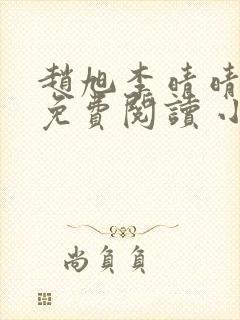 趙旭李晴晴
免費閱讀小
尚負負